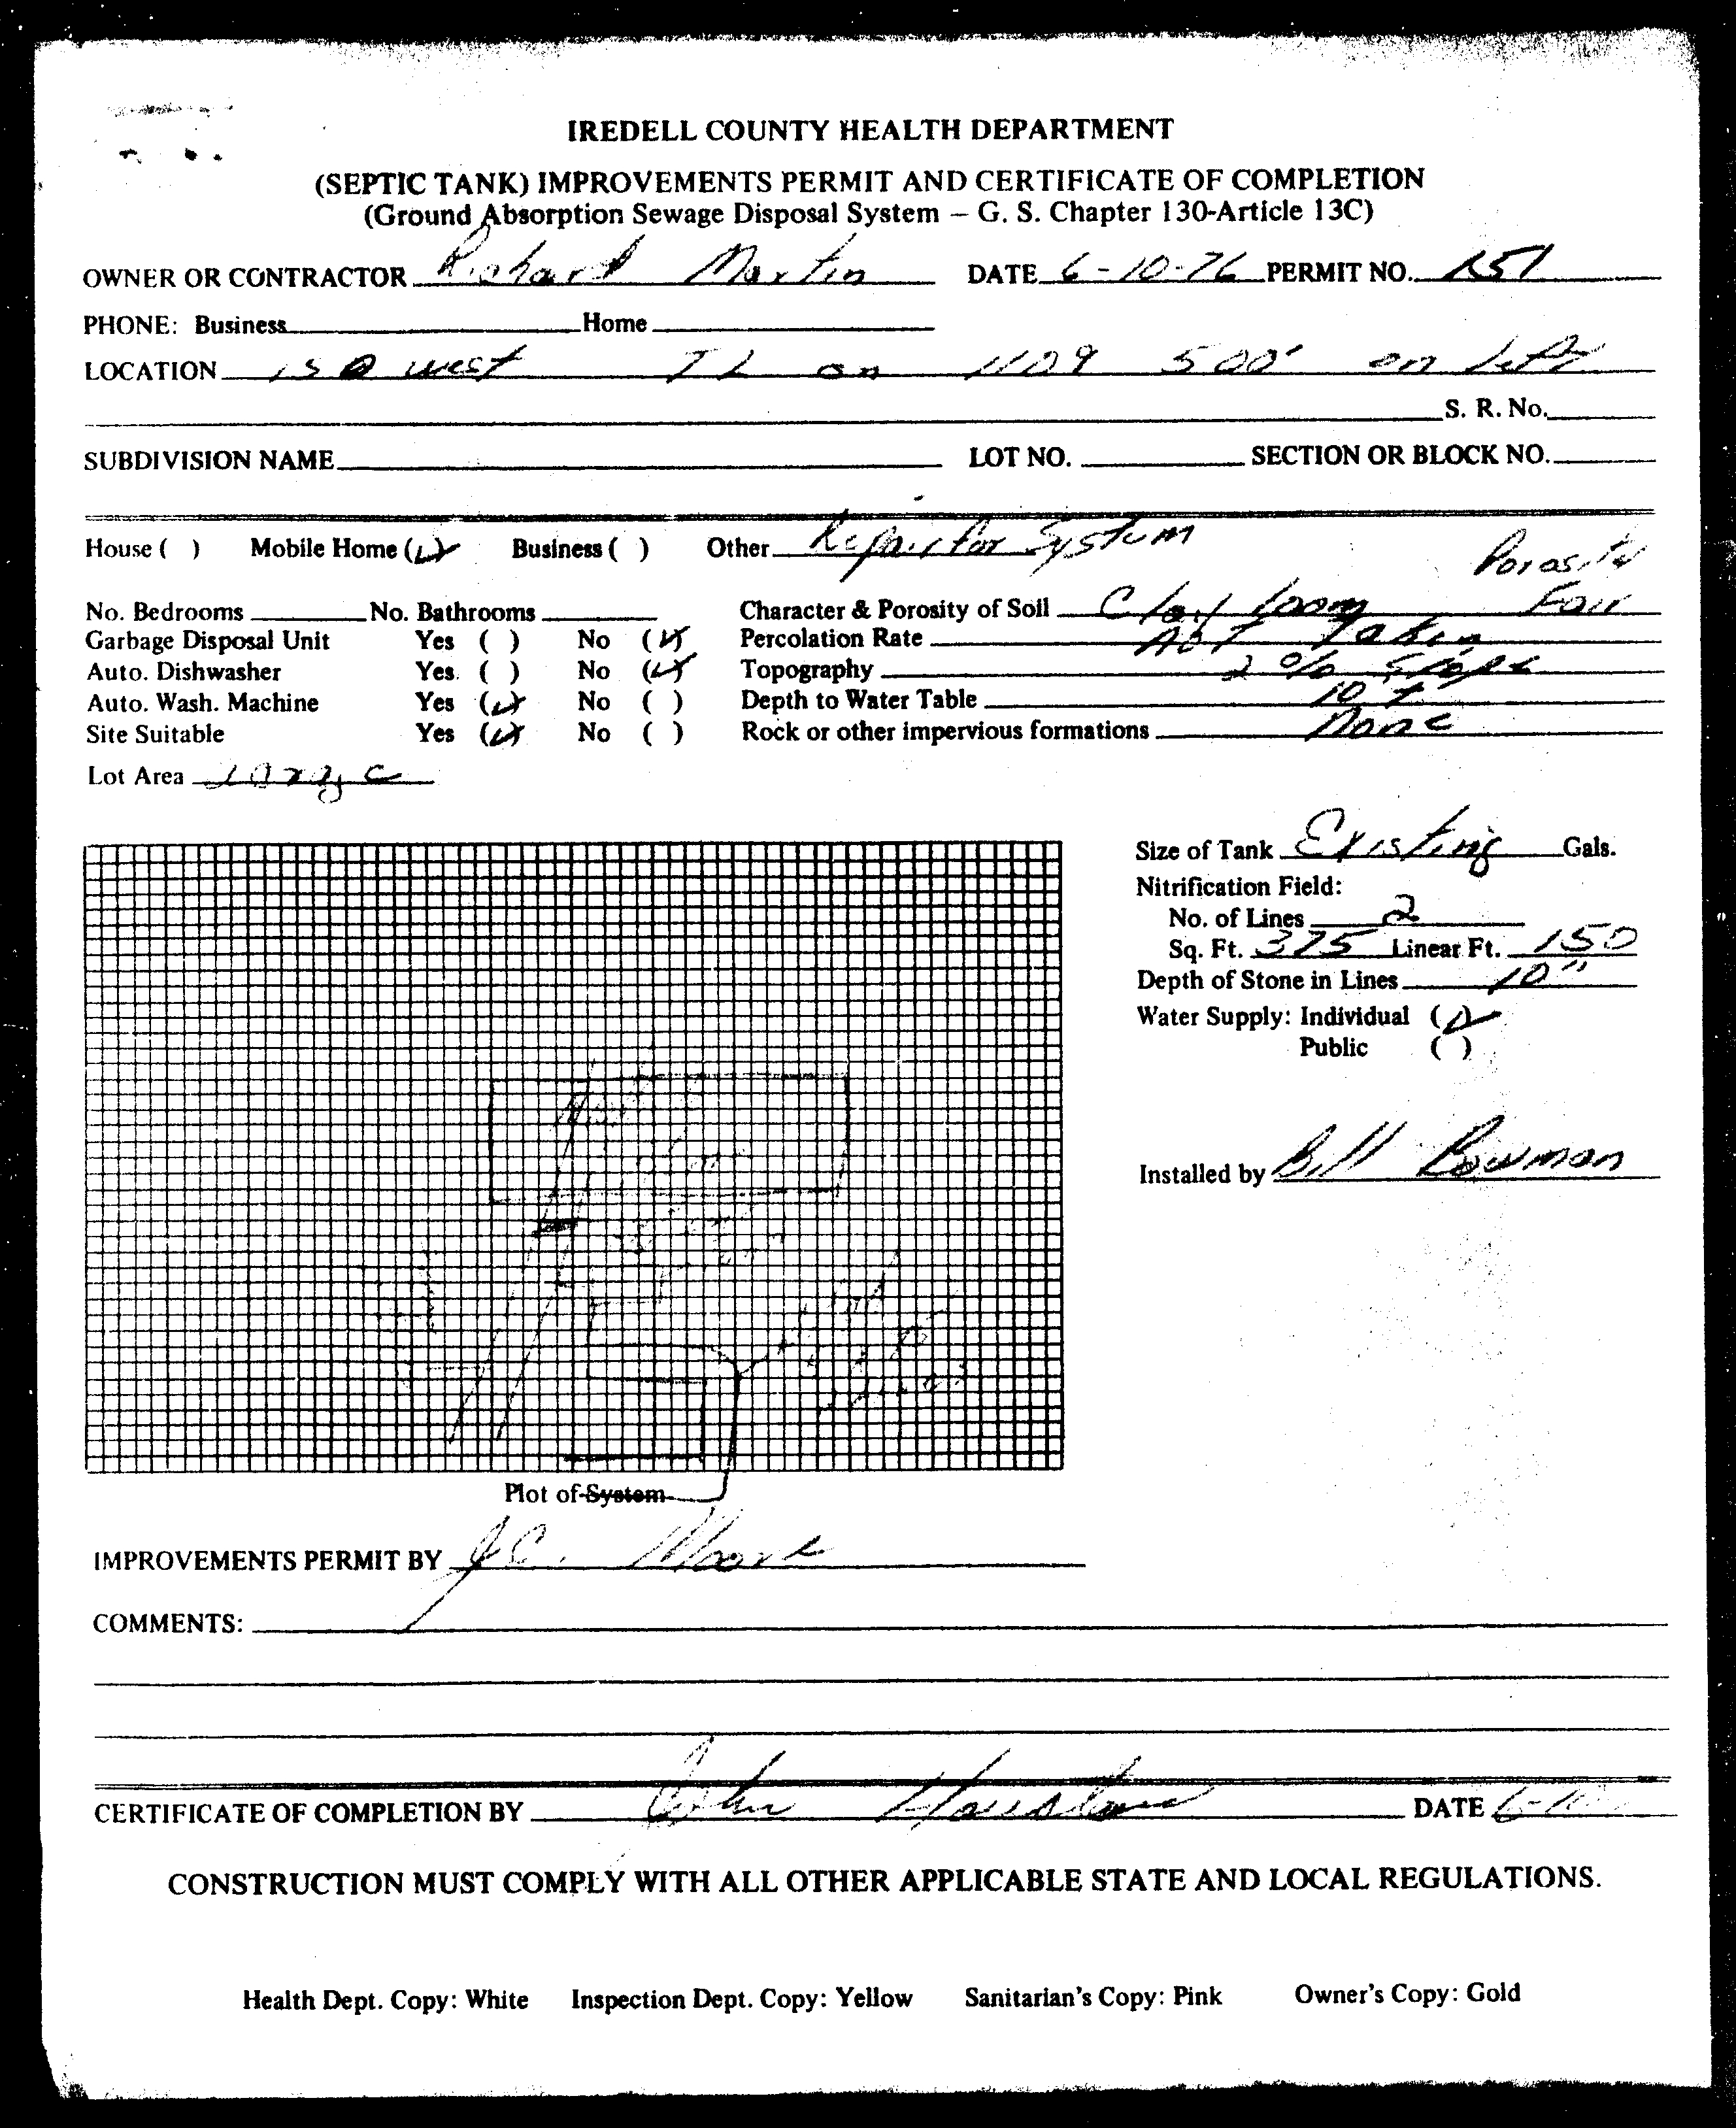 IREDELL COUNTY HEALTH DEPARTMENT
(SEPTIC TANK) IMPROVEMENTS PERMIT AND CERTIFICATE OF COMPLETION
(Ground Absorption Sewage Disposal System – G. S. Chapter 130-Article 13C)
OWNER OR CONTRACTOR Richard Martin DATE 6-10-76 PERMIT NO.
PHONE: Business Home
LOCATION west TL on 1109 500' on left
S. R. No.
SUBDIVISION NAME LOT NO. SECTION OR BLOCK NO.
House ( ) Mobile Home (✓) Business ( ) Other Repair for System
Porosity
No. Bedrooms No. Bathrooms Character & Porosity of Soil Clay loam Fair
Garbage Disposal Unit Yes ( ) No (✓) Percolation Rate Not Taken
Auto. Dishwasher Yes ( ) No (✓) Topography 2% Slope
Auto. Wash. Machine Yes (✓) No ( ) Depth to Water Table 10 +
Site Suitable Yes (✓) No ( ) Rock or other impervious formations None
Lot Area large
Size of Tank Existing Gals.
Nitrification Field:
No. of Lines 2
Sq. Ft. 375 Linear Ft. 150
Depth of Stone in Lines 10"
Water Supply: Individual (✓)
Public ( )
Installed by Bill Bowman
Plot of System
IMPROVEMENTS PERMIT BY J.C. Moore
COMMENTS:
CERTIFICATE OF COMPLETION BY DATE
CONSTRUCTION MUST COMPLY WITH ALL OTHER APPLICABLE STATE AND LOCAL REGULATIONS.
Health Dept. Copy: White Inspection Dept. Copy: Yellow Sanitarian's Copy: Pink Owner's Copy: Gold